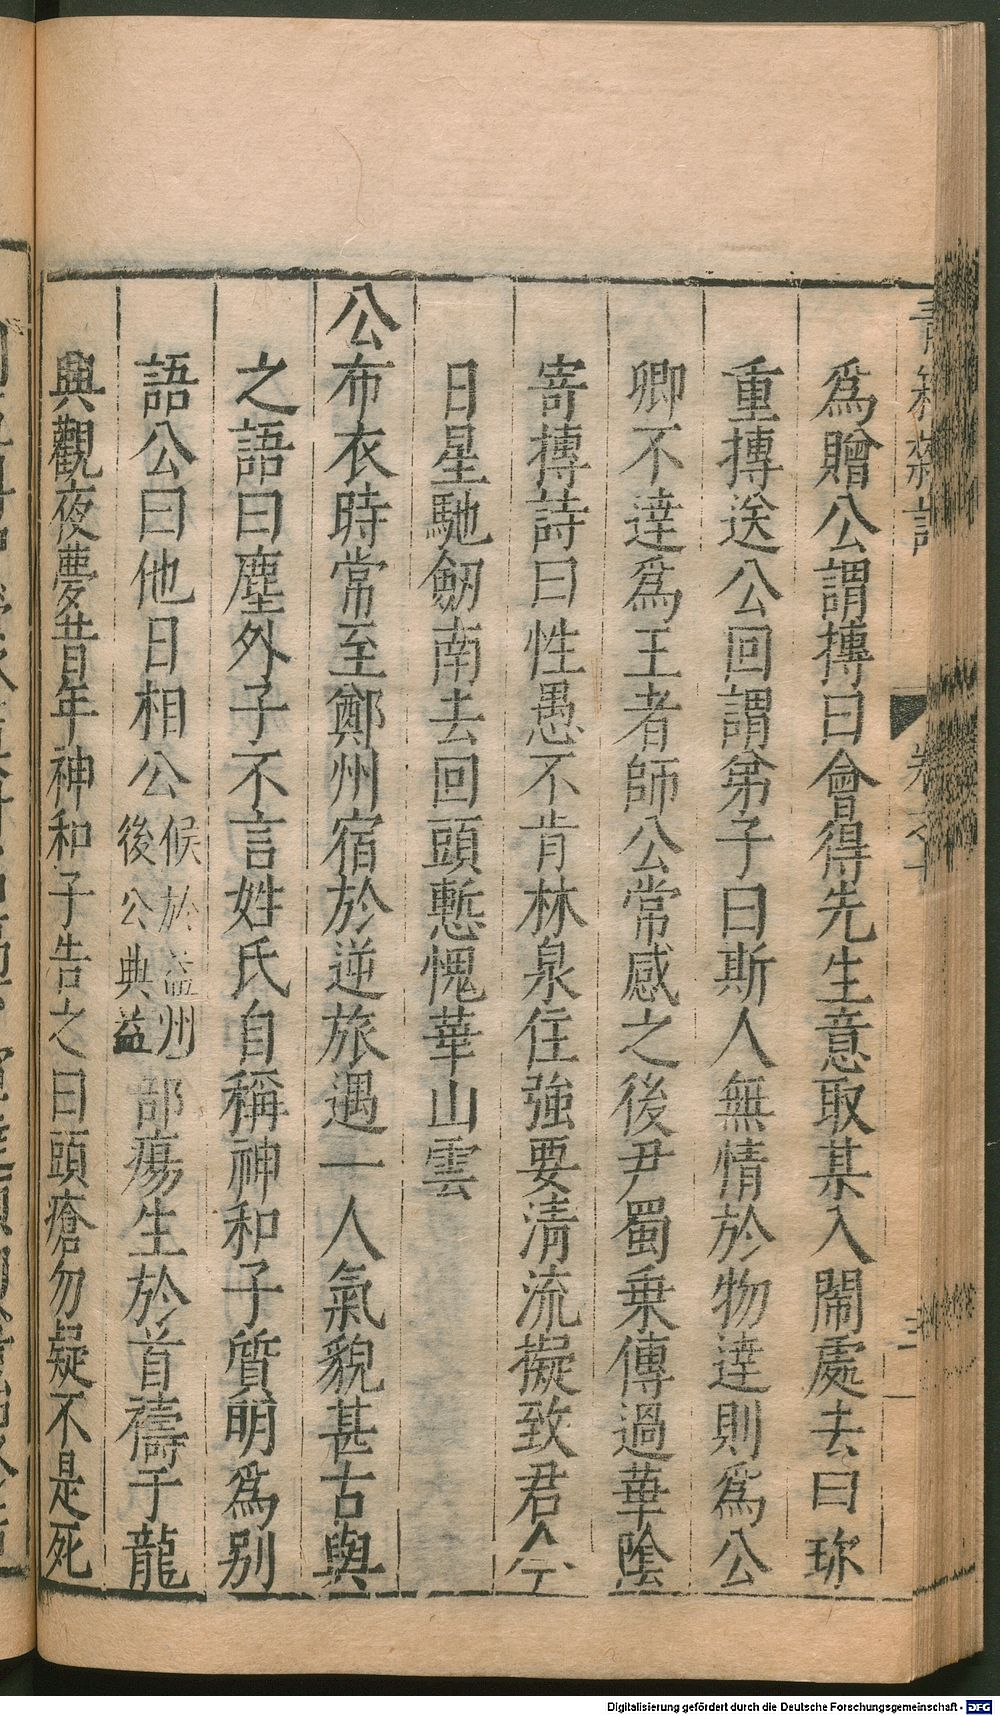 爲贈公謂摶曰會得先生意取某入鬧處去曰珎
重摶送公回謂弟子曰斯人無情於物達則爲公
卿不達爲王者師公常感之後尹蜀乗傳過華陰
寄摶詩曰性愚不肯林泉住強要淸流擬致君今
日星馳劒南去回頭慙愧華山雲
公布衣時常至鄭州宿於逆旅遇一人氣貌甚古與
之語曰塵外子不言姓氏自稱神和子質明爲别
語公曰他日相公候於益州後公典益部瘍生於首禱于龍
興觀夜夢昔年神和子告之曰頭瘡勿疑不是死
Digitalisierung gefördert durch die Deutsche Forschungsgemeinschaft - DFG